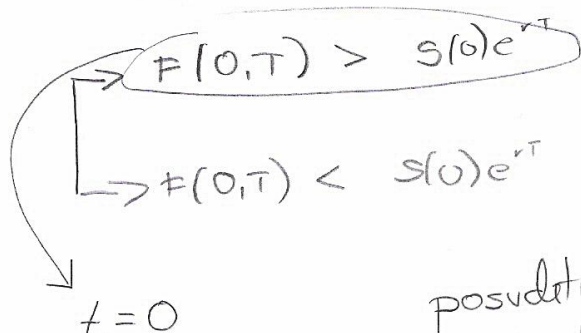 F(0,T) > S(0)e^{rT}
F(0,T) < S(0)e^{rT}
t=0 posuditi